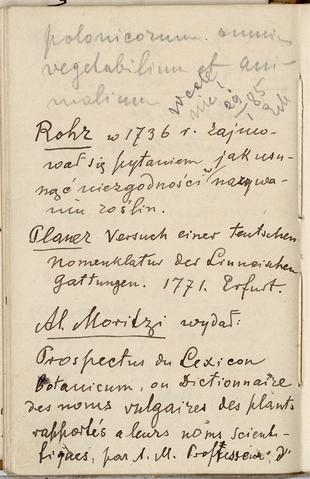 polonicorum omnium
vegetabilium et ani-
malium
29/1 85
Rohr w 1736 r. zajmo-
wał się pytaniem jak usu-
nąć niezgodności w nazywa-
niu roślin.
Planer Versuch einer teutschen
Nomenklatur der Linneischen
Gattungen. 1771. Erfurt.
Al. Moritzi wydał:
Prospectus du Lexicon
botanicum, ou Dictionnaire
des noms vulgaires des plants
rapportés a leurs noms scienti-
fiques, par A. M. Professeur d'